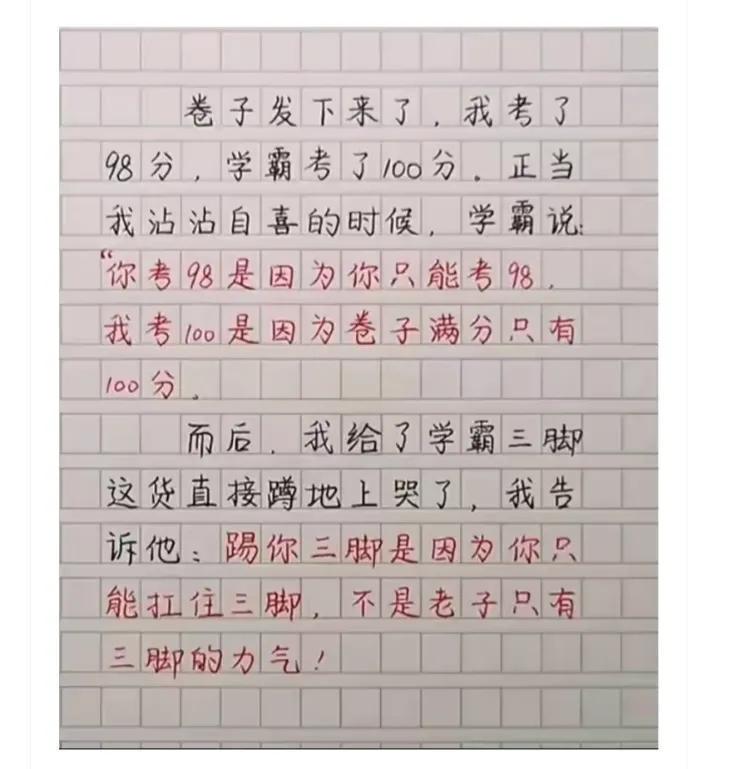 卷子发下来了，我考了
98分，学霸考了100分。正当
我沾沾自喜的时候，学霸说：
“你考98是因为你只能考98，
我考100是因为卷子满分只有
100分。
而后，我给了学霸三脚
这货直接蹲地上哭了，我告
诉他：踢你三脚是因为你只
能扛住三脚，不是老子只有
三脚的力气！